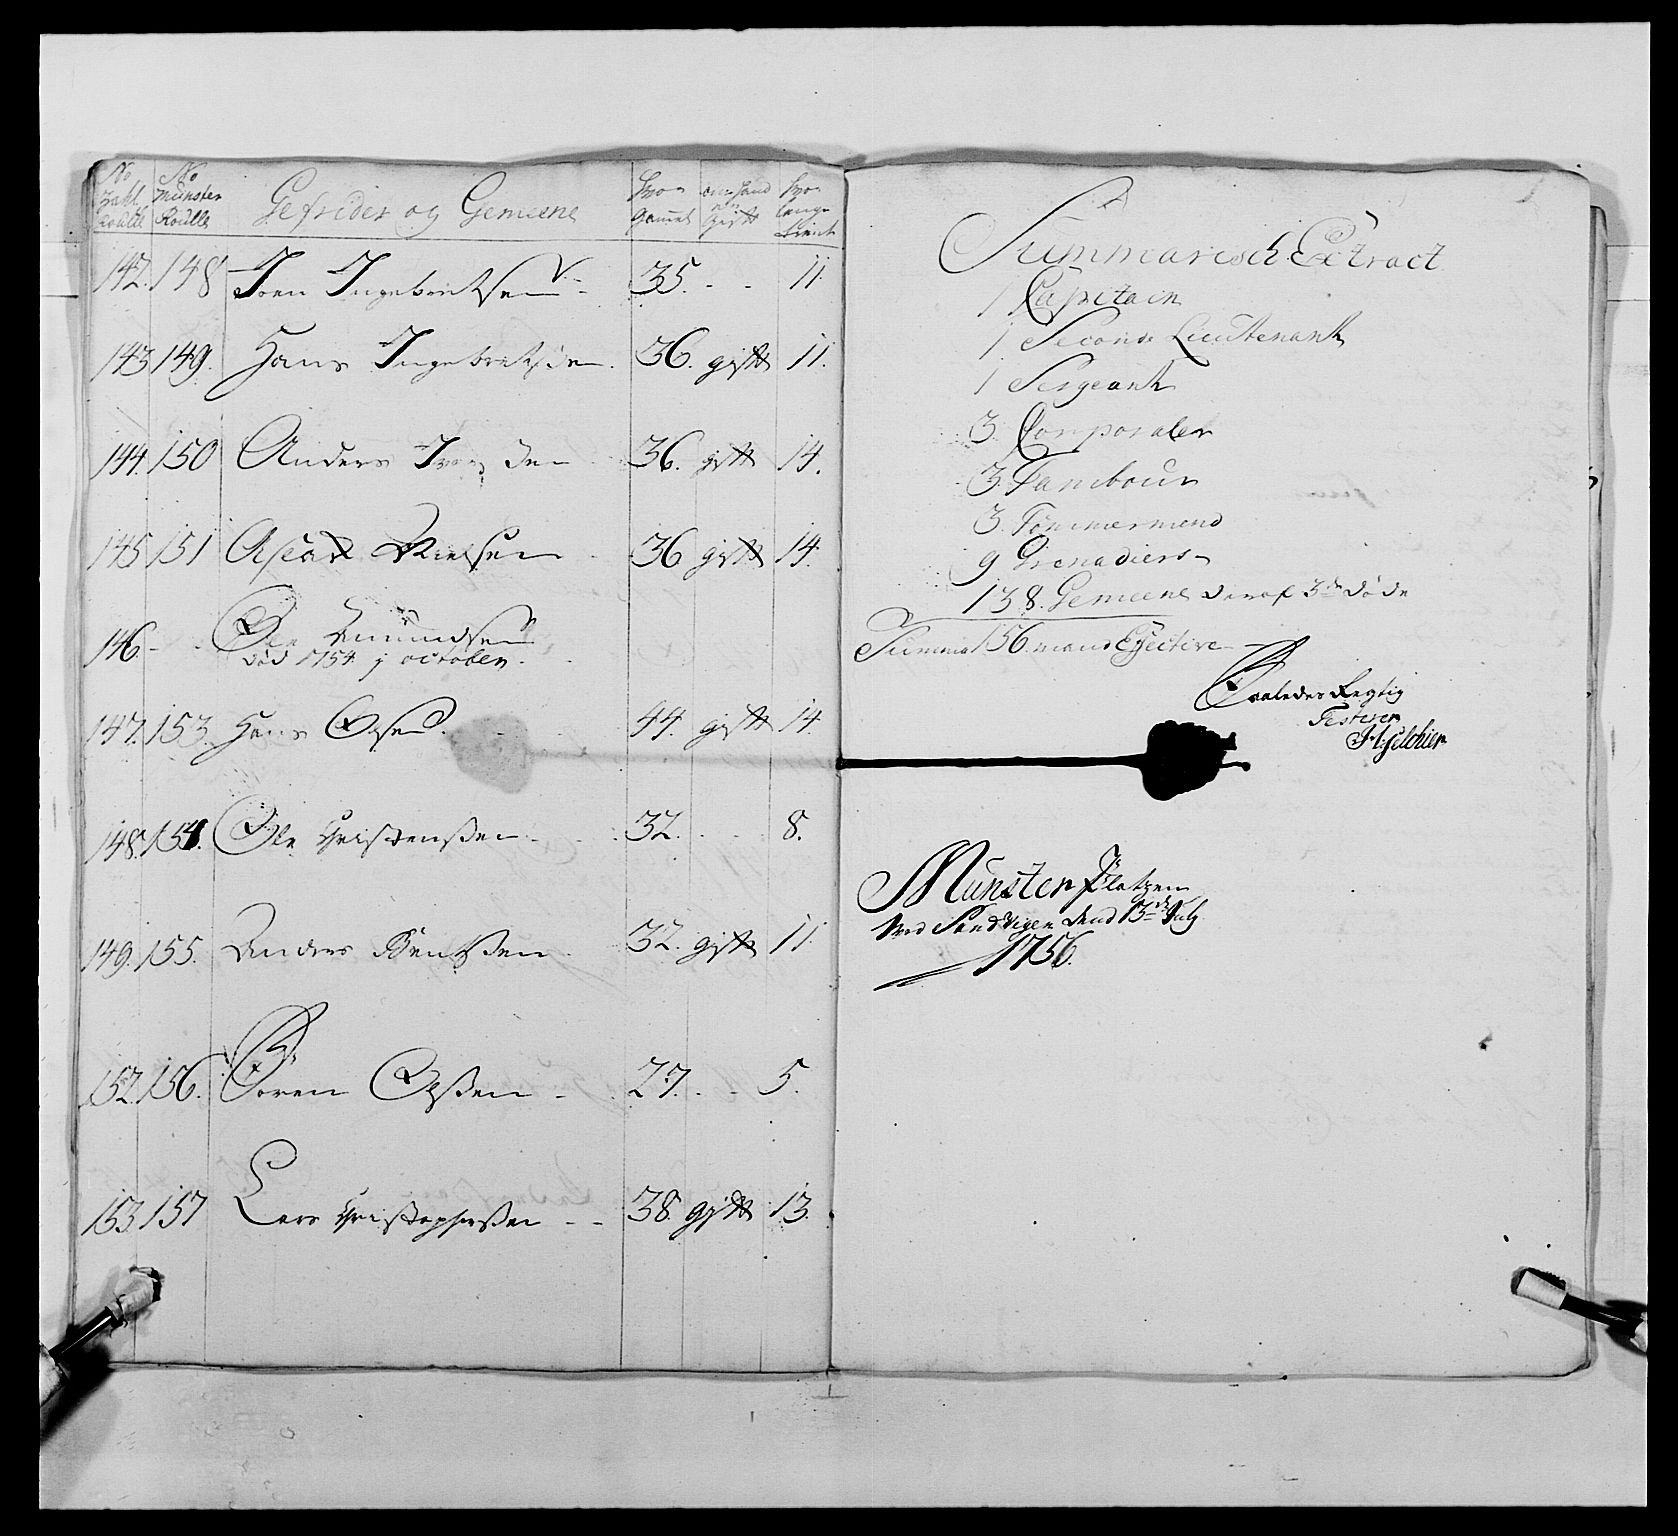 No Zahl Roulle | No Munster Roulle | Gefrider og Gemeene | Hvor gammel | om hand er gift | Hvor lenge tient
142. 148 Iven Ingebretsen - 35. - - 11.
143 149. Hans Ingebretsen. 36. gift 11.
144. 150 Anders Iversen 36. gift 14.
145 151 Aslak Nielsen - 36 gift 14.
146. - Ole Amundsen
død 1754 j october.
147. 153. Hans Olsen. 44. gift 14.
148. 154. Ole Christensen - 32. - - 8.
149. 155. Anders Bentsen. 32. gift 11.
152. 156. Søren Olsen - 27. - - 5.
153. 157 Lars Christophersen - - 38. gift 13.
Summarisch Extract
1 Capitain
1 Second Lieutenant
1 Sergeant
3. Corporaler
3. Tambour
3. Tømmermend
9 Grenadiers
138. Gemeene deraf 3de døde
Summa 156. mand Effective
Saaledes Regtig
Testerer
H: Melchier
Munster Pladzen
Ved Sandvigen dend 13de July
1756.